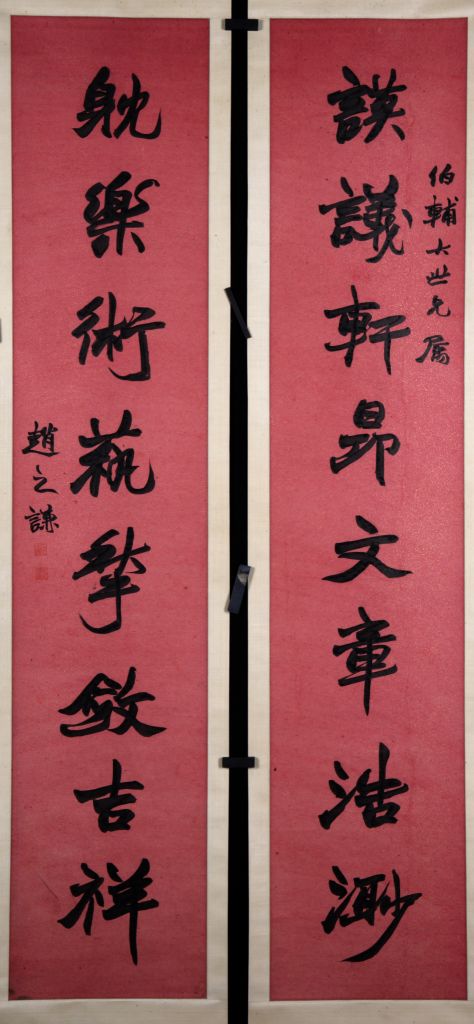 伯輔大世兄屬
謨議軒昂文章浩渺
躭樂術蓺揫斂吉祥
趙之謙